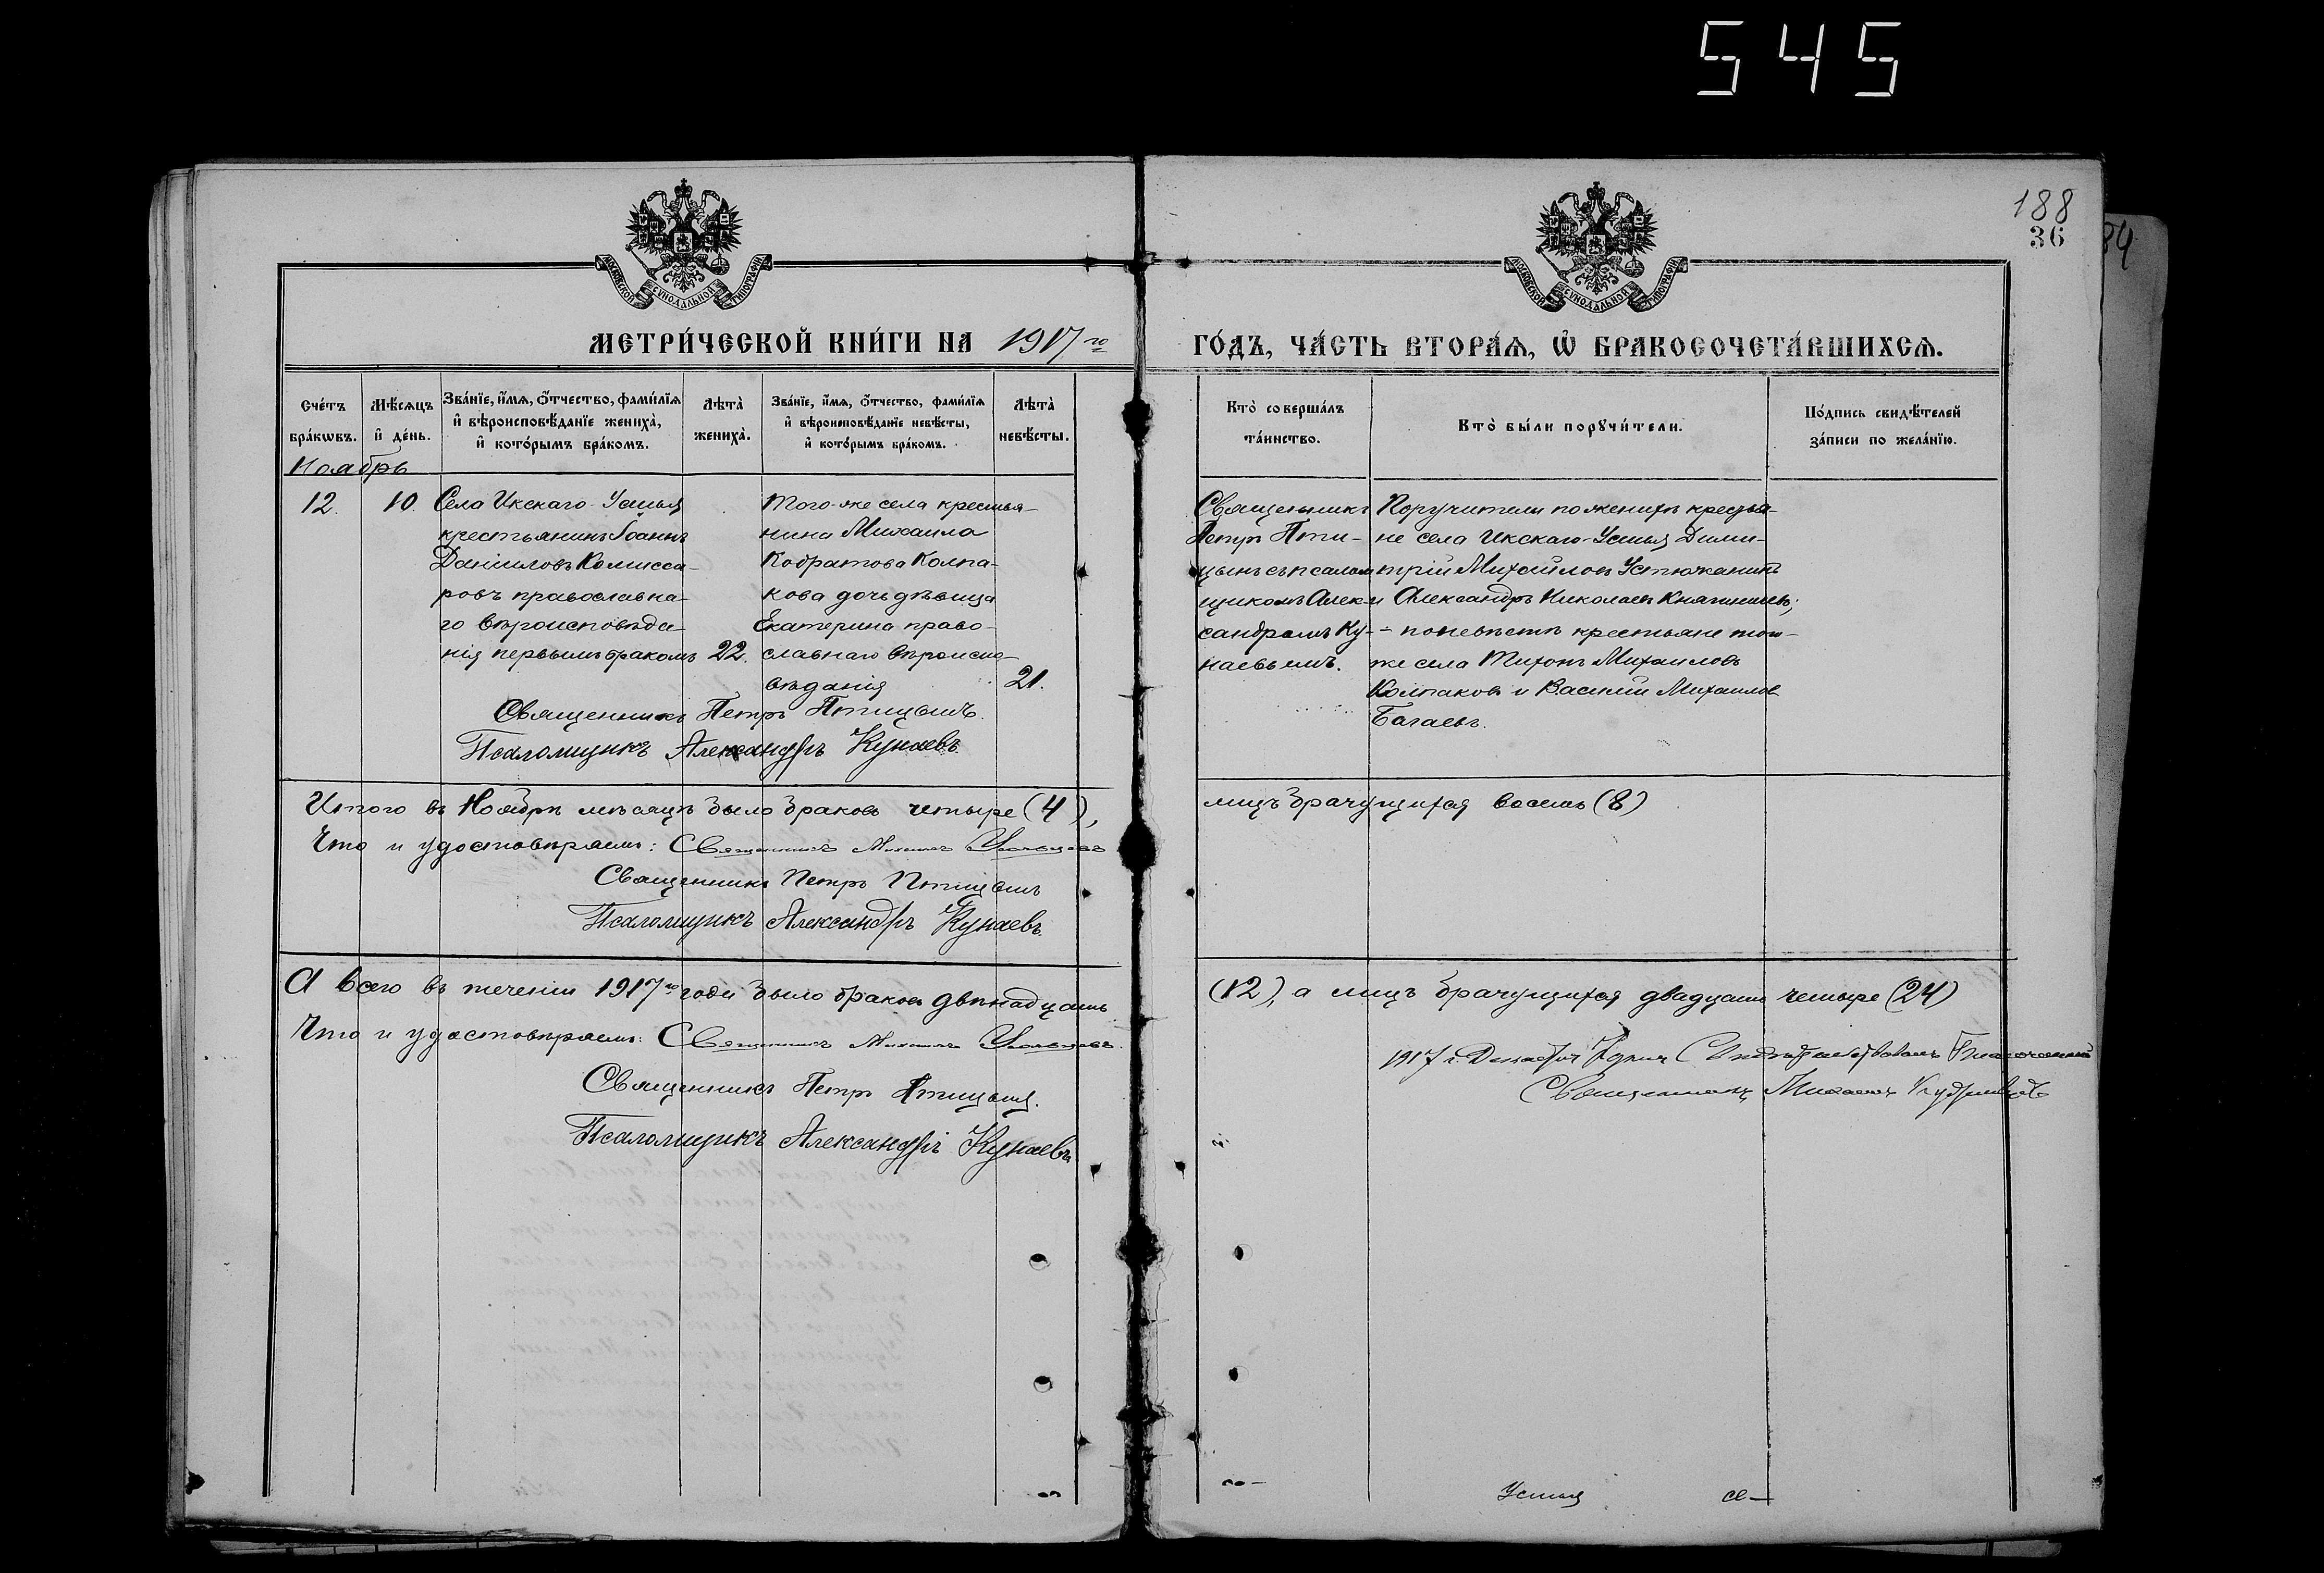 545
188
36
34
МОСКОВСКОЙ СѴНОДАЛЬНОЙ ТИПОГРАФІИ
МОСКОВСКОЙ СѴНОДАЛЬНОЙ ТИПОГРАФІИ
МЕТРИ́ЧЕСКОЙ КНИ́ГИ НА 1917го
ГО́ДЪ, ЧА́СТЬ ВТОРА́Ѧ, Ѡ БРАКОСОЧЕТА́ВШИХСѦ.
Сче́тъ бра́кѡвъ.
Мѣ́сѧцъ и҆ де́нь.
Зва́нїе, и҆́мѧ, ѻ҆́тчество, фами́лїѧ и҆ вѣроисповѣ́данїе жениха̀, и҆ кото́рымъ бра́комъ.
Лѣта̀ жениха̀.
Зва́нїе, и҆́мѧ, ѻ҆́тчество, фами́лїѧ и҆ вѣроисповѣ́данїе невѣ́сты, и҆ кото́рымъ бра́комъ.
Лѣта̀ невѣ́сты.
Кто̀ соверша́лъ та́инство.
Кто̀ бы́ли порꙋчи́тели.
По́дпись свидѣ́телей за́писи по жела́нїю.
Ноябрь
12.
10.
Села Икскаго-Устья
крестьянинъ Іоаннъ
Даніиловъ Комисса-
ровъ православна-
го вѣроисповѣда-
нія первымъ бракомъ
22.
Того-же села крестья-
нина Михаила
Кодратова Колпа-
кова дочь дѣвица
Екатерина право-
славнаго вѣроиспо-
вѣданія
21.
Священникъ Петръ Птицынъ.
Псаломщикъ Александръ Кунаевъ.
Священникъ
Петръ Пти-
цынъ съ псалом
щикомъ Алек-
сандромъ Ку-
наевымъ.
Поручители по женихѣ крестья-
не села Икскаго-Устья Дими-
трій Михайловъ Устюжанинъ
и Александръ Николаевъ Княгиничевъ;
- по невѣстѣ крестьяне того-
же села Тихонъ Михаиловъ
Колпаковъ и Василій Михаилов
Багаевъ.
Итого въ Ноябрѣ мѣсяцѣ было браковъ четыре (4),
лицъ брачущихся восемь (8)
Что и удостовѣряемъ: Священникъ Михаилъ
Священникъ Петръ Птицынъ
Псаломщикъ Александръ Кунаевъ.
А всего въ теченіи 1917го года было браковъ двѣнадцать
(12), а лицъ брачущихся двадцать четыре (24)
Что и удостовѣряемъ: Священникъ Михаилъ
Священникъ Петръ Птицынъ.
Псаломщикъ Александръ Кунаевъ
1917 г. Декабря Свидѣтельствовалъ Благочинный
Священникъ Михаилъ Кудрявцевъ
Устья
се-